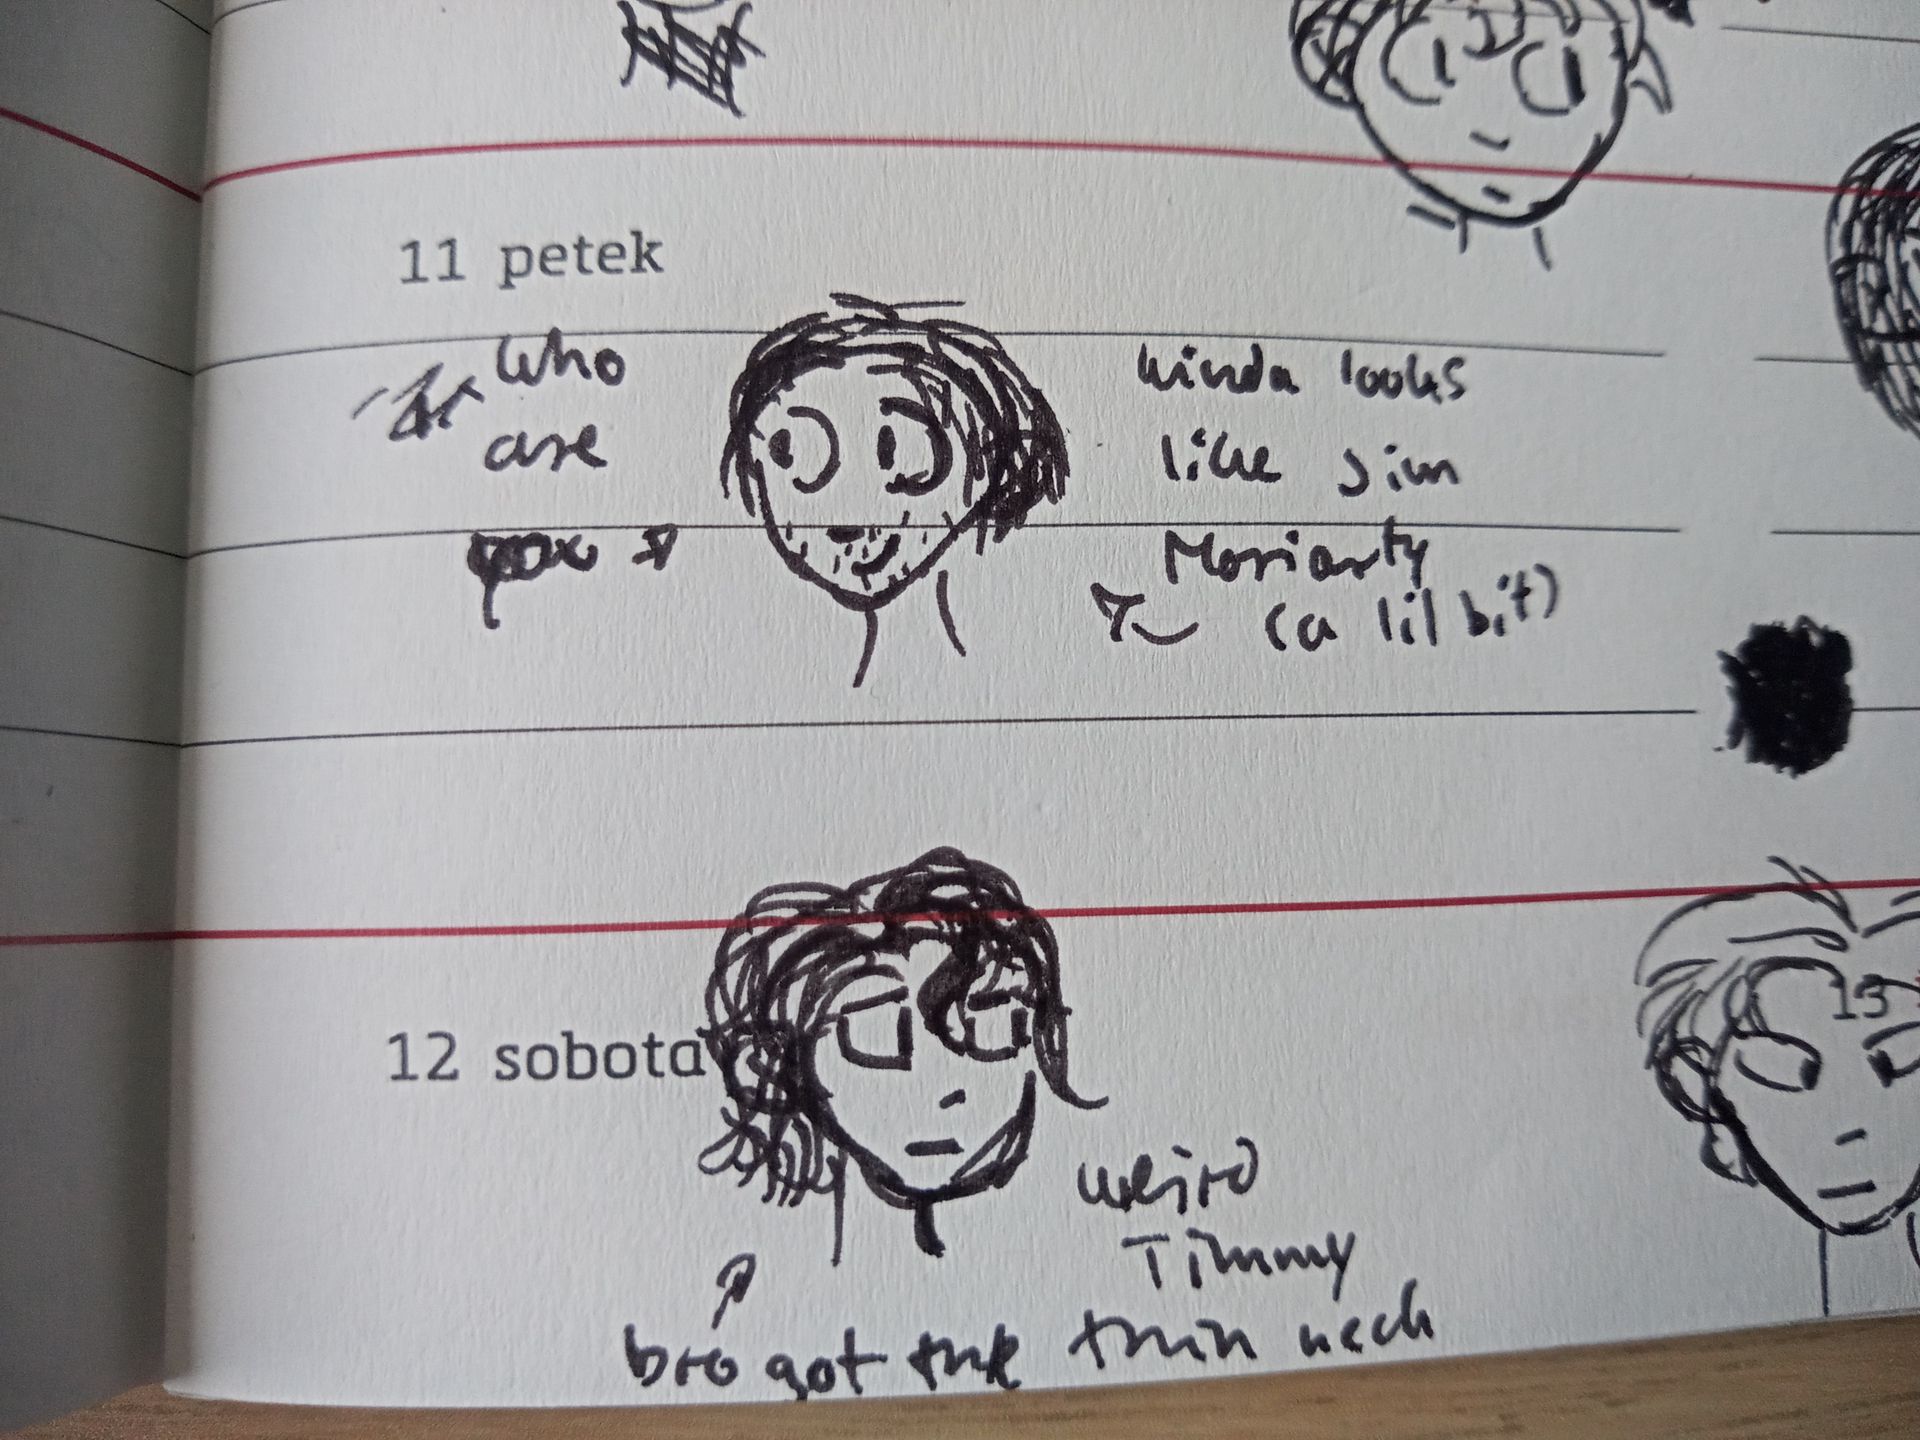 11 petek
who
are
you
kinda looks
like Jim
Moriarty
(a lil bit)
12 sobota
13
weird
Timmy
bro got the thin neck